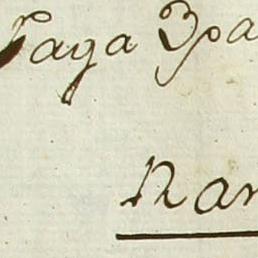 Paga Spa
Nar